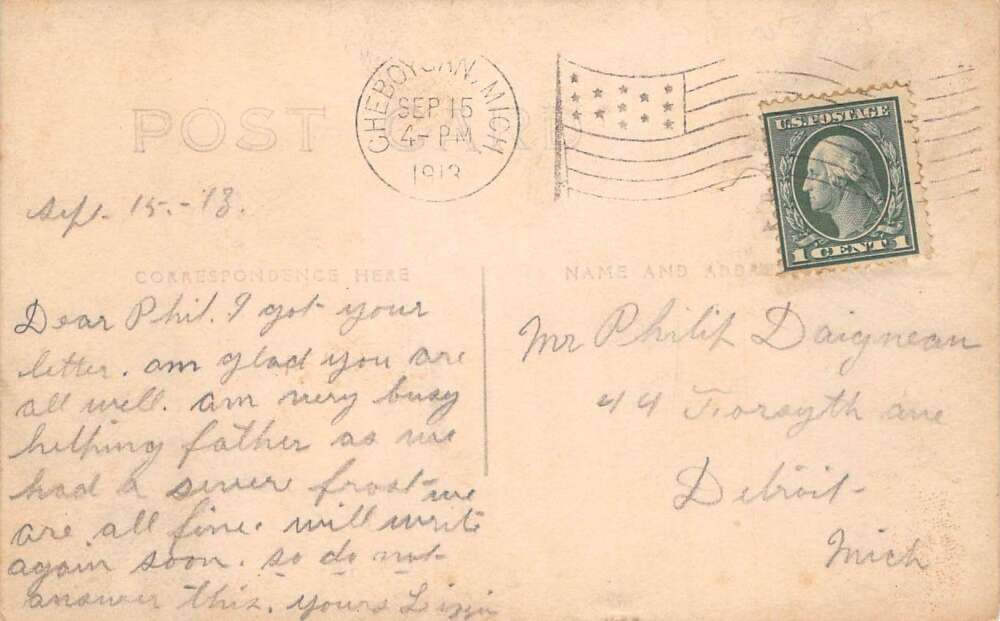 CHEBOYGAN, MICH
SEP 15
4-PM
1913
U.S. POSTAGE
1 CENT 1
POST CARD
Sept. 15.-13.
CORRESPONDENCE HERE
Dear Phil. I got your
letter. am glad you are
all well. am very busy
helping father as we
had a sever frost we
are all fine. will write
again soon. so do not
answer this. yours Lizzie
NAME AND ADDRESS
Mr Philip Daigneau
44 Forsyth ave
Detroit
Mich